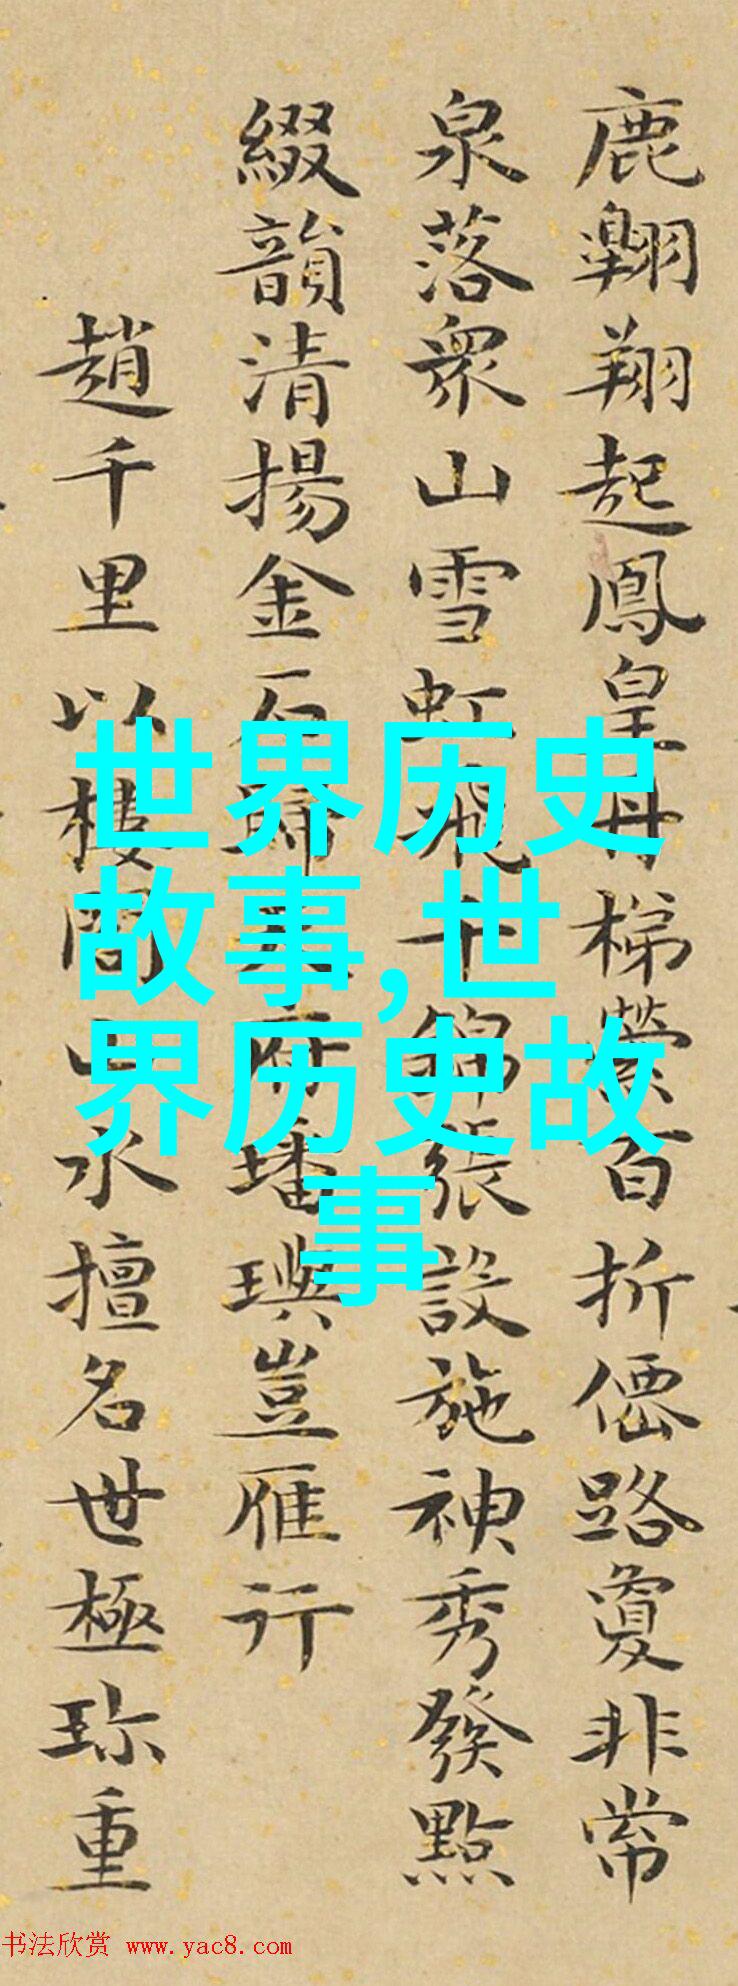 鹿翱翔起鳳皇丹梯縈百折僊路敻非常
泉落衆山雪虹飛千錦張設施神秀發點
綴韻清揚金石歸天府璠璵豈雁行
趙千里以樓閣山水擅名世極珎重
世界历史
故事,世
界历史故
事
书法欣赏 www.yac8.com